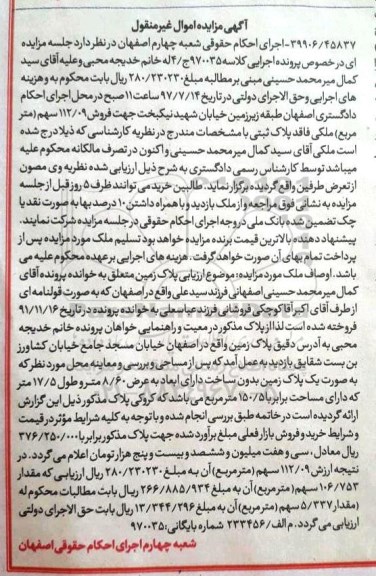 آگهی مزایده اموال غیرمنقول
۳۹۹۰۶/۴۵۸۳۷-اجرای احکام حقوقی شعبه چهارم اصفهان در نظر دارد جلسه مزایده
ای در خصوص پرونده اجرایی کلاسه ۹۷۰۰۳۵ج/۴ له خانم خدیجه محبی و علیه آقای سید
کمال میر محمد حسینی مبنی بر مطالبه مبلغ ۲۸۰/۲۳۰۲۳۰ ریال بابت محکوم به و هزینه
های اجرایی و حق الاجرای دولتی در تاریخ ۹۷/۷/۱۴ ساعت ۱۱ صبح در محل اجرای احکام
دادگستری اصفهان طبقه زیرزمین خیابان شهید نیکبخت جهت فروش ۱۱۲/۰۹ سهم (متر
مربع) ملکی فاقد پلاک ثبتی با مشخصات مندرج در نظریه کارشناسی که ذیلا درج شده
است ملکی آقای سید کمال میر محمد حسینی و اکنون در تصرف مالکانه محکوم علیه
میباشد توسط کارشناس رسمی دادگستری به شرح ذیل ارزیابی شده نظریه وی مصون
از تعرض طرفین واقع گردیده برگزار نماید. طالبین خرید می توانند ظرف ۵ روز قبل از جلسه
مزایده به نشانی فوق مراجعه و از ملک بازدید و با همراه داشتن ۱۰ درصد بها به صورت نقد یا
چک تضمین شده بانک ملی در وجه اجرای احکام حقوقی در جلسه مزایده شرکت نمایند.
پیشنهاد دهنده بالاترین قیمت برنده مزایده خواهد بود تسلیم ملک مورد مزایده پس از
پرداخت تمام بهای آن صورت خواهد گرفت. هزینه های اجرایی بر عهده محکوم علیه می
باشد. اوصاف ملک مورد مزایده: موضوع ارزیابی پلاک زمین متعلق به خوانده پرونده آقای
کمال میر محمد حسینی اصفهانی فرزند سید علی واقع در اصفهان که به صورت قولنامه ای
از طرف آقای اکبر آقا کوچکی فروشانی فرزند عباسعلی به خوانده پرونده در تاریخ ۹۱/۱۱/۱۶
فروخته شده است لذا از پلاک مذکور در معیت و راهنمایی خواهان پرونده خانم خدیجه
محبی به آدرس دقیق پلاک زمین واقع در اصفهان خیابان مسجد جامع خیابان کشاورز
بن بست شقایق بازدید به عمل آمد که پس از مساحی و بررسی و معاینه محل مورد نظر که
به صورت یک پلاک زمین بدون ساخت دارای ابعاد به عرض ۸/۶۰ متر و طول ۱۷/۵ متر
که دارای مساحت برابر با ۱۵۰/۵ متر مربع می باشد که کروکی پلاک مذکور ذیل این گزارش
ارائه گردیده است در خاتمه طبق بررسی انجام شده و با توجه به کلیه شرایط مؤثر در قیمت
و شرایط خرید و فروش بازار فعلی مبلغ برآورد شده جهت پلاک مذکور برابر با ۳۷۶/۲۵۰/۰۰۰
ریال معادل، سی و هفت میلیون و ششصد و بیست و پنج هزار تومان اعلام می گردد. در
نتیجه ارزش ۱۱۲/۰۹ سهم (مترمربع) آن به مبلغ ۲۸۰/۲۳۰۲۳۰ ریال ارزیابی که مقدار
۱۰۶/۷۵۳ سهم (متر مربع) آن به مبلغ ۲۶۶/۸۸۵/۹۳۴ ریال بابت مطالبات محکوم له
(مقدار ۵/۳۳۷ سهم (متر مربع) آن به مبلغ ۱۳/۳۴۴/۲۹۶ ریال بابت حق الاجرای دولتی
ارزیابی می گردد. م الف/ ۲۳۳۴۵۶ شماره بایگانی: ۹۷۰۰۳۵
شعبه چهارم اجرای احکام حقوقی اصفهان